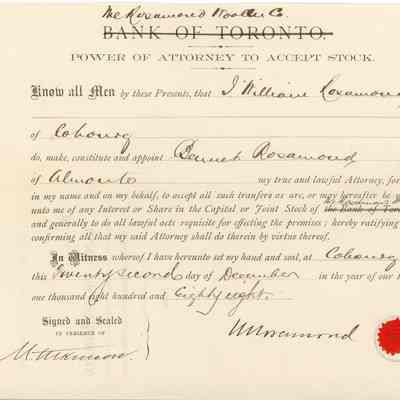 The Rosamond Woollen Co.
BANK OF TORONTO.
POWER OF ATTORNEY TO ACCEPT STOCK.
Know all Men by these Presents, that I William Rosamond
of Cobourg
do, make, constitute and appoint Bennet Rosamond
of Almonte my true and lawful Attorney, for
in my name and on my behalf, to accept all such tranfers as are, or may hereafter be
unto me of any Interest or Share in the Capital or Joint Stock of the Bank of Toro
and generally to do all lawful acts requisite for effecting the premises; hereby ratifying
confirming all that my said Attorney shall do therein by virtue thereof.
In Witness whereof I have hereunto set my hand and seal, at Cobourg
this Twenty second day of December in the year of our
one thousand eight hundred and Eighty eight.
Signed and Sealed
IN PRESENCE OF
W Rosamond